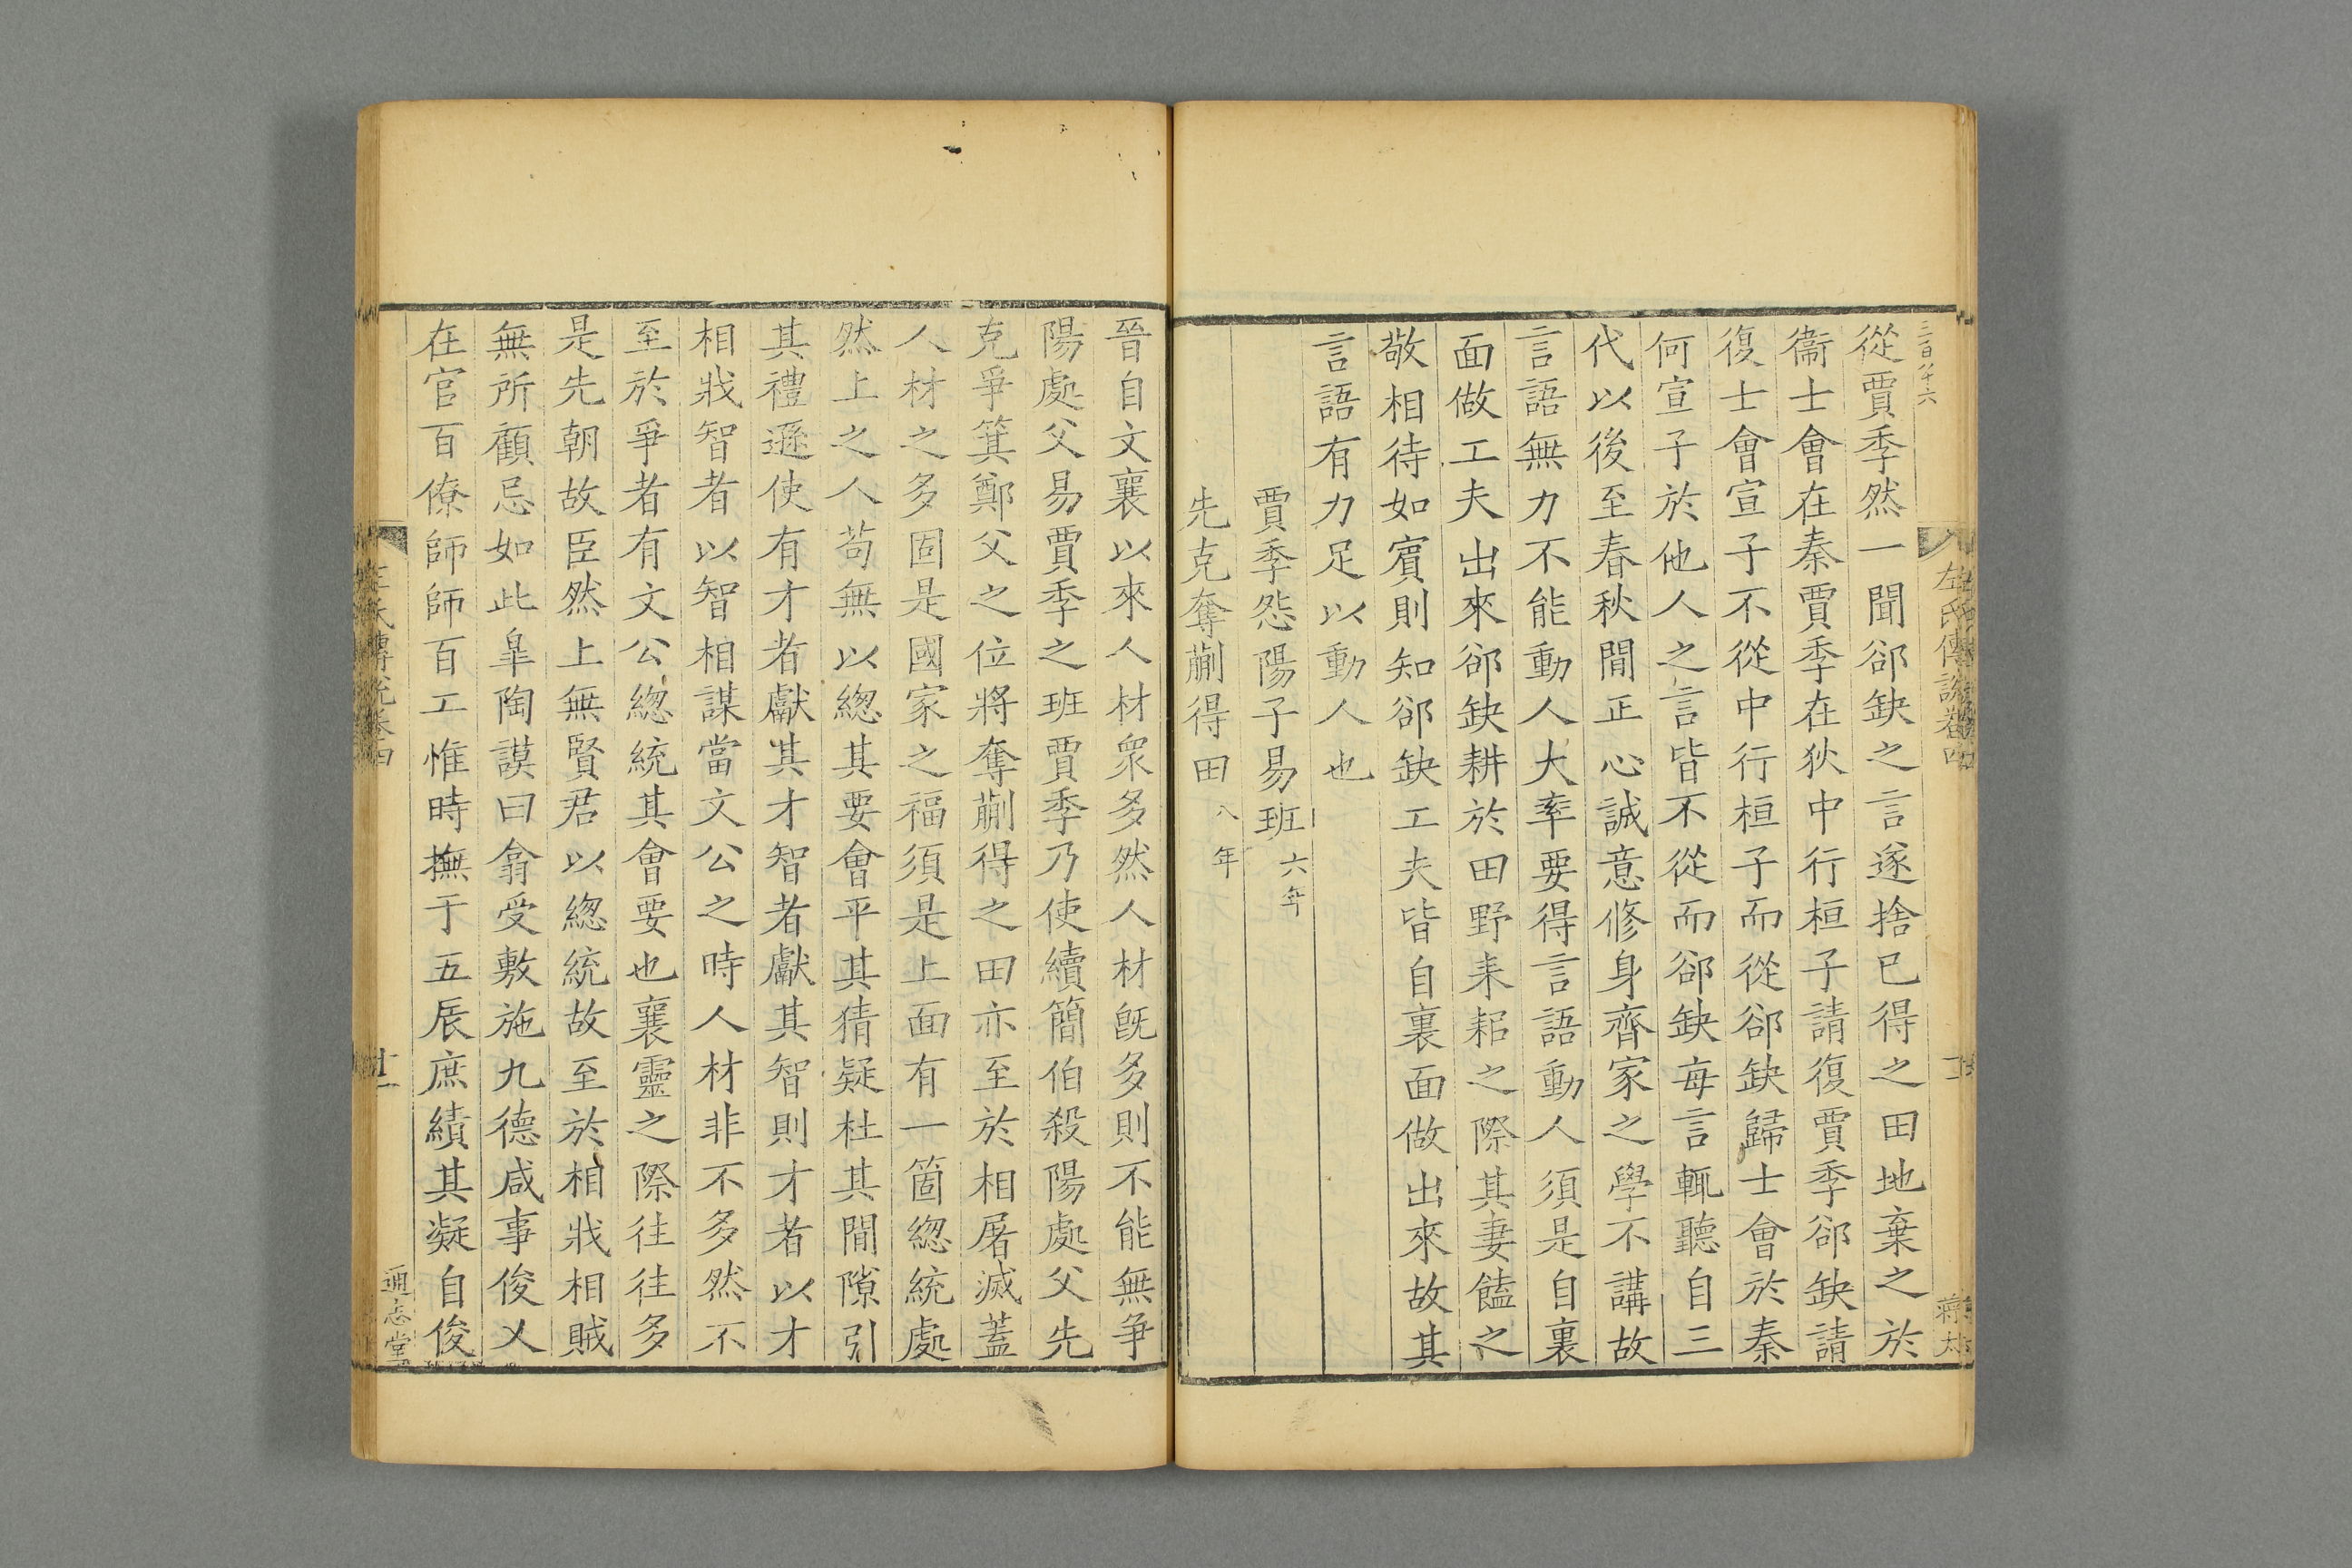 從賈季然一聞郤缺之言遂捨已得之田地棄之於
衞士會在秦賈季在狄中行桓子請復賈季郤缺請
復士會宣子不從中行桓子而從郤缺歸士會於秦
何宣子於他人之言皆不從而郤缺每言輒聽自三
代以後至春秋間正心誠意修身齊家之學不講故
言語無力不能動人大率要得言語動人須是自裏
面做工夫出來郤缺耕於田野耒耜之際其妻饁之
敬相待如賓則知郤缺工夫皆自裏面做出來故其
言語有力足以動人也
賈季怨陽子易班六年
先克奪蒯得田八年
晉自文襄以來人材衆多然人材旣多則不能無爭
陽處父易賈季之班賈季乃使續簡伯殺陽處父先
克爭箕鄭父之位將奪蒯得之田亦至於相屠滅蓋
人材之多固是國家之福須是上面有一箇緫統處
然上之人苟無以緫其要會平其猜疑杜其間隙引
其禮遜使有才者獻其才智者獻其智則才者以才
相戕智者以智相謀當文公之時人材非不多然不
至於爭者有文公緫統其會要也襄靈之際往往多
是先朝故臣然上無賢君以緫統故至於相戕相賊
無所顧忌如此臯陶謨曰翕受敷施九德咸事俊乂
在官百僚師師百工惟時撫于五辰庶績其凝自俊
左氏傳說卷四
通志堂